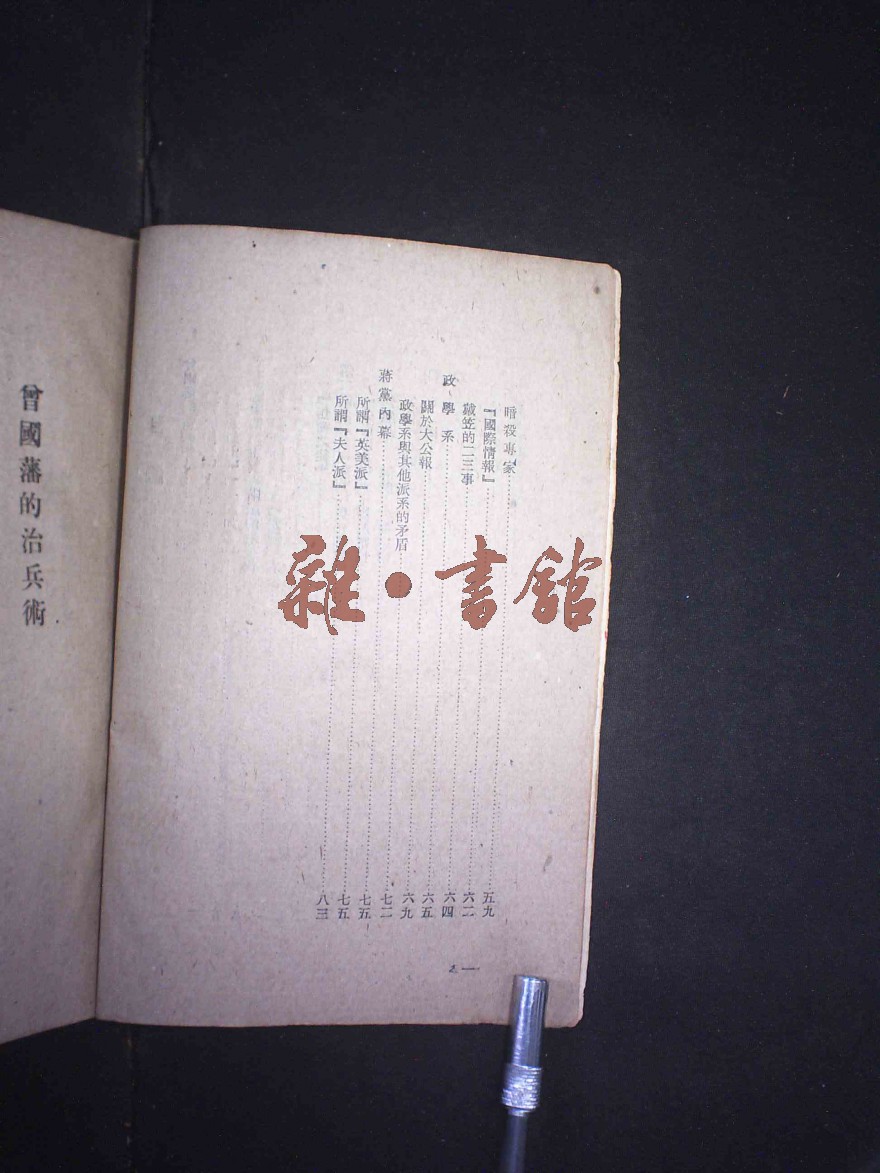 暗殺專家……五九
『國際情報』……六二
戴笠的二三事……六四
政學系……六五
關於大公報……六九
政學系與其他派系的矛盾……七二
蔣黨內幕……七五
所謂『英美派』……七五
所謂『夫人派』……八三
曾國藩的治兵術
雜·書館